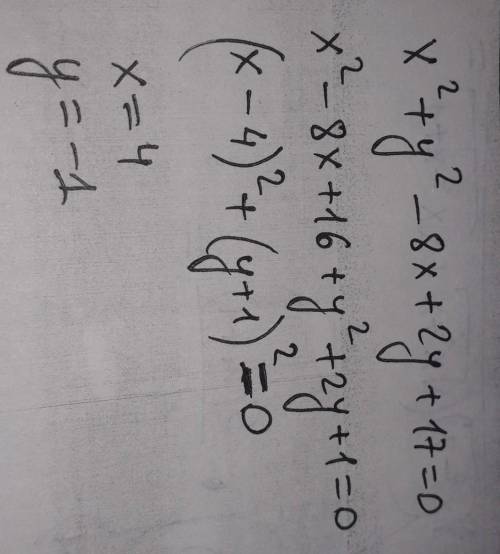 x² + y² - 8x + 2y + 17 = 0
x² - 8x + 16 + y² + 2y + 1 = 0
(x - 4)² + (y + 1)² = 0
x = 4
y = -1